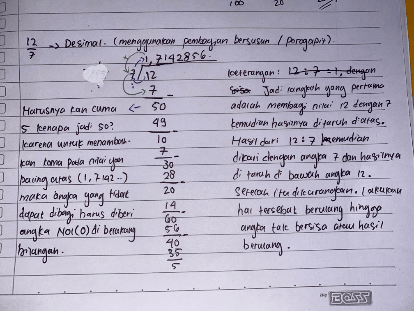 100 20
12/7 -> Desimal. (menggunakan pembagian bersusun / porogapit).
1,7142856
7 / 12
7 -
50
49 -
10
7 -
30
28 -
20
14 -
60
56 -
40
35
5
Harusnya kan cuma <-
5 kenapa jadi 50?
karena untuk menambah-
kan koma pada nilai yan
paling atas (1,7142..)
maka angka yang tidak
dapat dibagi harus diberi
angka NOL(0) di belakang
bilangan.
keterangan: 12 : 7 = 1, dengan
Jadi langkah yang pertama
adalah membagi nilai 12 dengan 7
kemudian hasilnya ditaruh diatas.
Hasil dari 12 : 7 kemudian
dikali dengan angka 7 dan hasilnya
di taruh di bawah angka 12.
Setelah itu dikurangkan. Lakukan
hal tersebut berulang hingga
angka tak bersisa atau hasil
berulang.
BOSS